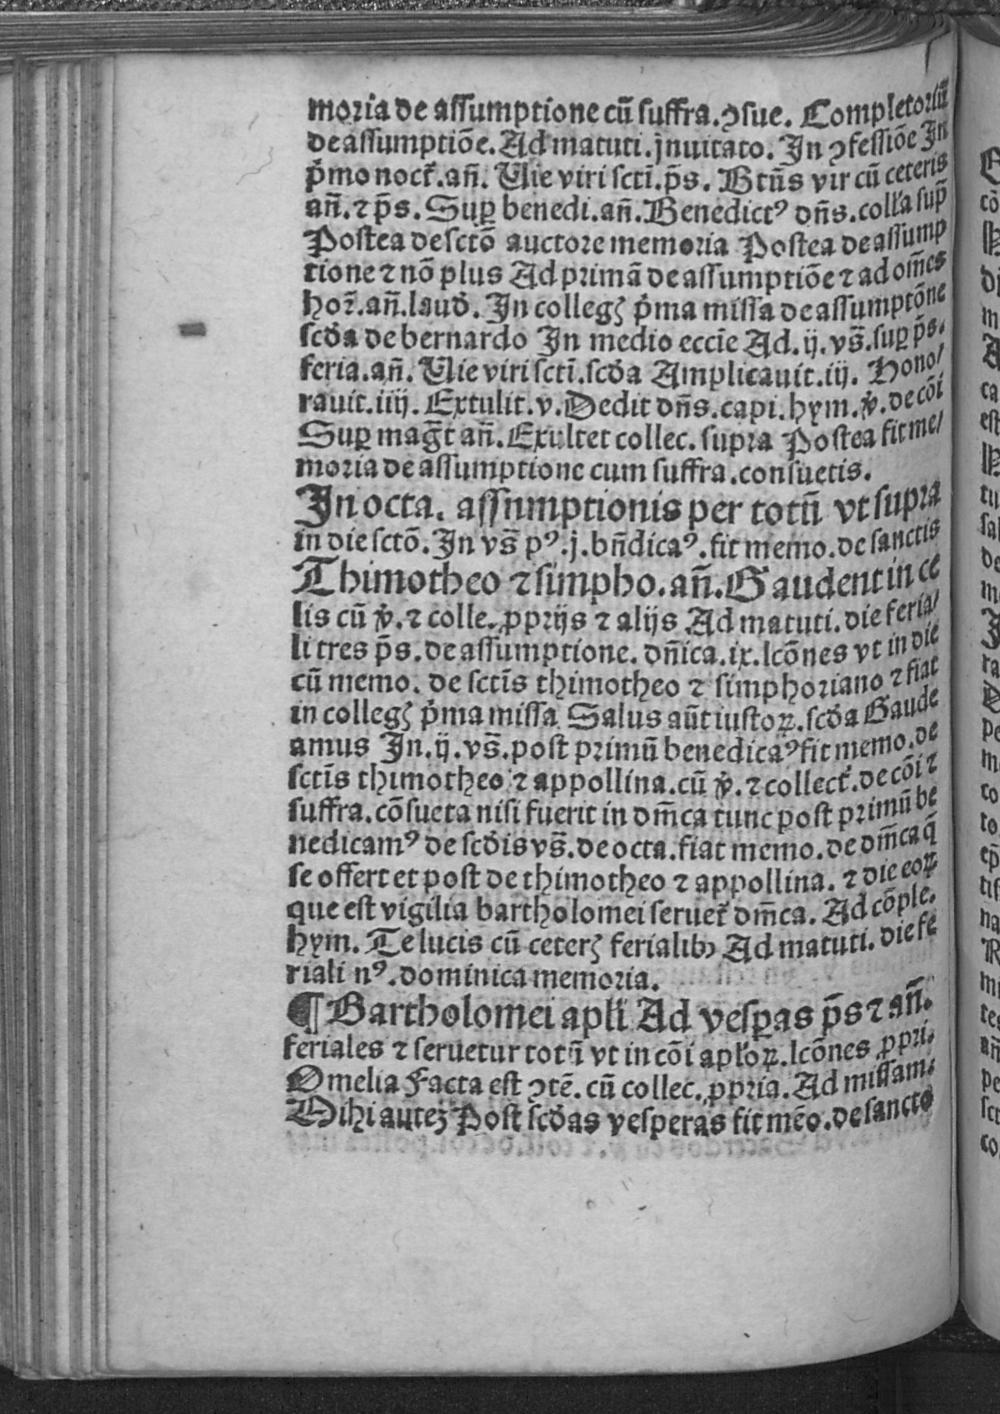 moria de assumptione cū suffra.ↄsue. Completoriū
de assumptiōe. Ad matuti.jnuitato. In ↄfessiōe In
p̄mo noct̄. añ. Uie viri sctī.p̄s. Btūs vir cū ceteris
añ. ⁊ p̄s. Suꝑ benedi.añ. Benedictꝰ dñs.coll'a sup̄
Postea de sctō auctore memoria Postea de assump
tione ⁊ nō plus Ad primā de assumptiōe ⁊ ad om̄es
hor̄.añ.laud'. In collegꝭ p̄ma missa de assumptōne
scd'a de bernardo In medio eccīe Ad.ij.vs̄.suꝑ p̄s.
feria.añ. Uie viri sctī.scd'a Amplicauit.iij. Hono/
rauit.iiij. Extulit.v. Dedit dñs.capi.hym.v̄. de cōi
Suꝑ mag̅t añ. Exultet collec. supra Postea fit me/
moria de assumptione cum suffra.consuetis.
In octa. assumptionis per totū vt supra
in die sctō. In vs̄ pꝰ.j.bn̄dicaꝰ.fit memo.de sanctis
Thimotheo ⁊ simpho.añ. Gaudent in ce
lis cū v̄. ⁊ colle. ꝓprijs ⁊ alijs Ad matuti. die feria/
li tres p̄s. de assumptione. dn̄ica.ix.lcōnes vt in die
cū memo. de sctīs thimotheo ⁊ simphoriano ⁊ fiat
in collegꝭ p̄ma missa Salus aūt iustoꝝ.scd'a Gaude
amus In.ij.vs̄.post primū benedicaꝰ fit memo.de
sctīs thimotheo ⁊ appollina.cū v̄. ⁊ collect̄.de cōi ⁊
suffra.cōsueta nisi fuerit in dm̄ca tunc post primū be
nedicamꝰ de scd'is vs̄.de octa.fiat memo.de dm̄ca q̄
se offert et post de thimotheo ⁊ appollina. ⁊ die eoꝝ
que est vigilia bartholomei seruet̄ dm̄ca. Ad cōple.
hym. Te lucis cū ceterꝭ ferialibꝫ Ad matuti. die fe
riali nꝰ.dominica memoria.
¶ Bartholomei apl'i Ad vesꝑas p̄s ⁊ añ.
feriales ⁊ seruetur totū vt in cōi apl'oꝝ.lcōnes ꝓpri.
Omelia Facta est ↄtē. cū collec.ꝓpria. Ad missam.
Mihi auteꝫ Post scd'as vesperas fit mēo.de sancto